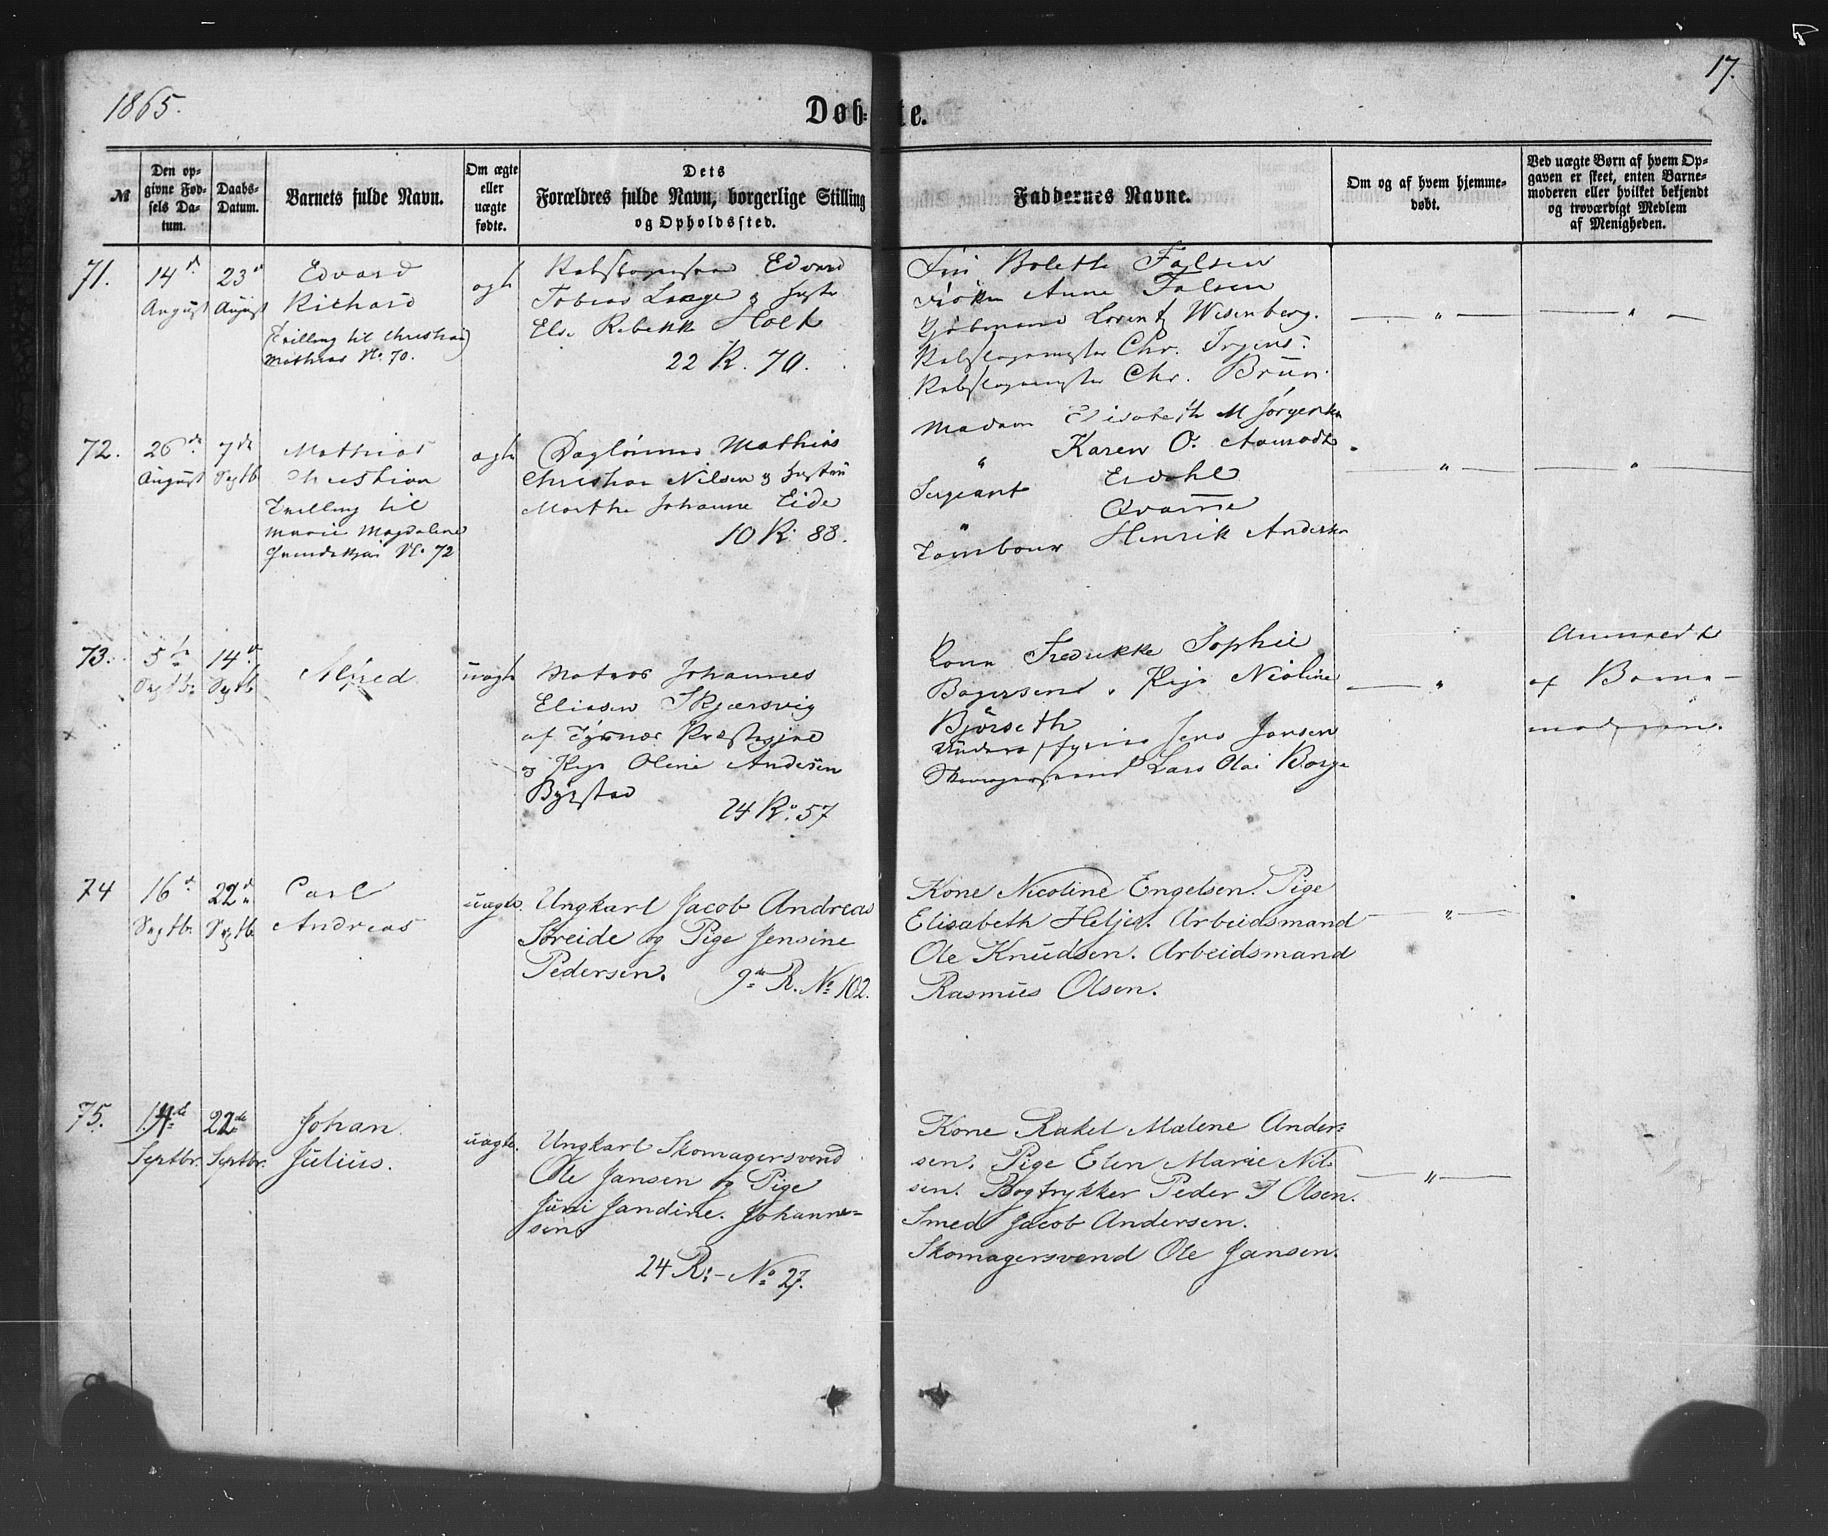 1865.
17.
Døbte.
№
Den opgivne Fødsels Datum.
Daabs-Datum.
Barnets fulde Navn.
Om ægte eller uægte fødte.
Dets Forældres fulde Navn, borgerlige Stilling og Opholdssted.
Faddernes Navne.
Om og af hvem hjemmedøbt.
Ved uægte Børn af hvem Opgaven er skeet, enten Barnemoderen eller hvilket bekjendt og troværdigt Medlem af Menigheden.
71.
14d
August
23d
August
Edvard
Richard
(Tvilling til Christian
Mathias No. 70.)
ægte
Edvard
Tobias Lange og Hustr
Else Rebekk Holt
22 R. 70.
Bolette Falsen
Frøken Anne Falsen
Kjøbmand Lorentz Wesenberg.
Chr. Irgens.
Chr. Brun.
— " —
— " —
72.
26de
August
7de
Septb
Mathias
Christian
Tvilling til
Marie Magdalene
No. 72
ægte
Daglønner Mathias
Christian Nilsen og Hustru
Marthe Johanne Eide
10 R. 88.
Madam Elisabeth M Jørgensen
" Karen O. Aamodt
Sergeant Erdahl
" Qvamme
Tambour Henrik Andersen
— " —
"
73.
5te
Septbr
14de
Septb
Alfred
uægte
Matros Johannes
Eliasen Skjærsvig
af Tysnæs Præstegjeld
og Pige Oline Andersen
Byrstad
24 R. 57
Kone Fredrikke Sophie
Pige Nicoline
Bjørseth
Jens Jansen
Lars Olai Borge
— " —
Anmeldt
af Barne-
moderen.
74
16d
Septb.
22d
Septb.
Carl
Andreas
uægte.
Ungkarl Jacob Andreas
Søreide og Pige Jensine
Pedersen. 9de R. No 102.
Kone Nicoline Engelsen. Pige
Elisabeth Heljes. Arbeidsmand
Ole Knudsen. Arbeidsmand
Rasmus Olsen.
— " —
75.
14de
Septbr.
22de
Septbr.
Johan
Julius.
uægte.
Ungkarl Skomagersvend
Ole Jansen og Pige
Juni Jandine. Johanne-
sen
24 R.- No 27.
Kone Rakel Malene Ander-
sen. Pige Elen Marie Nil-
sen. Bogtrykker Peder J Olsen.
Smed Jacob Andersen.
Skomagersvend Ole Jansen.
— " —